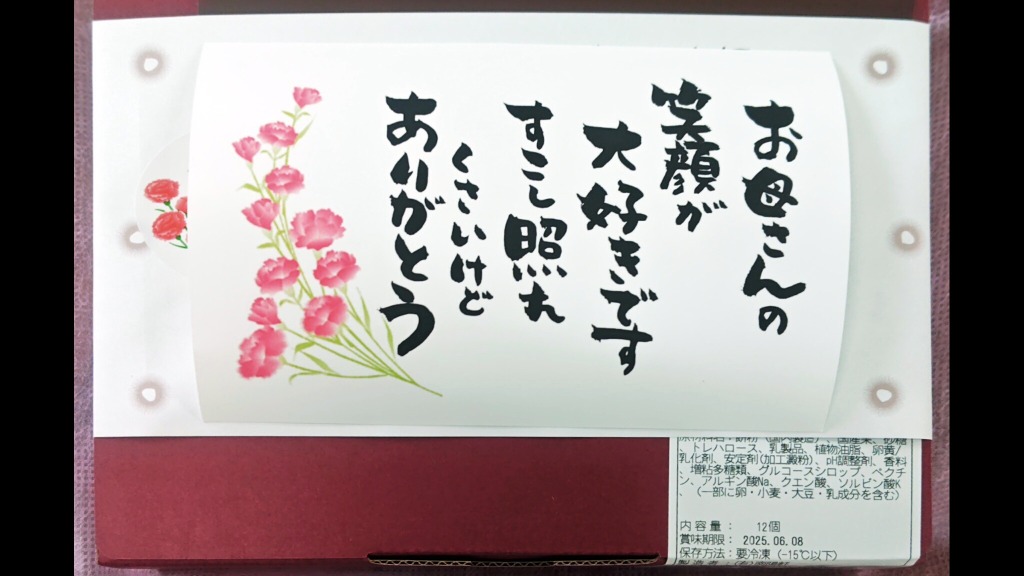 お母さんの
笑顔が
大好きです
すこし照れ
くさいけど
ありがとう
、トレハロース、乳製品、植物油脂、卵黄/
乳化剤、安定剤(加工澱粉)、pH調整剤、香料
、増粘多糖類、グルコースシロップ、ペクチ
ン、アルギン酸Na、クエン酸、ソルビン酸K
、(一部に卵・小麦・大豆・乳成分を含む)
内容量: 12個
賞味期限: 2025.06.08
保存方法:要冷凍(-15℃以下)